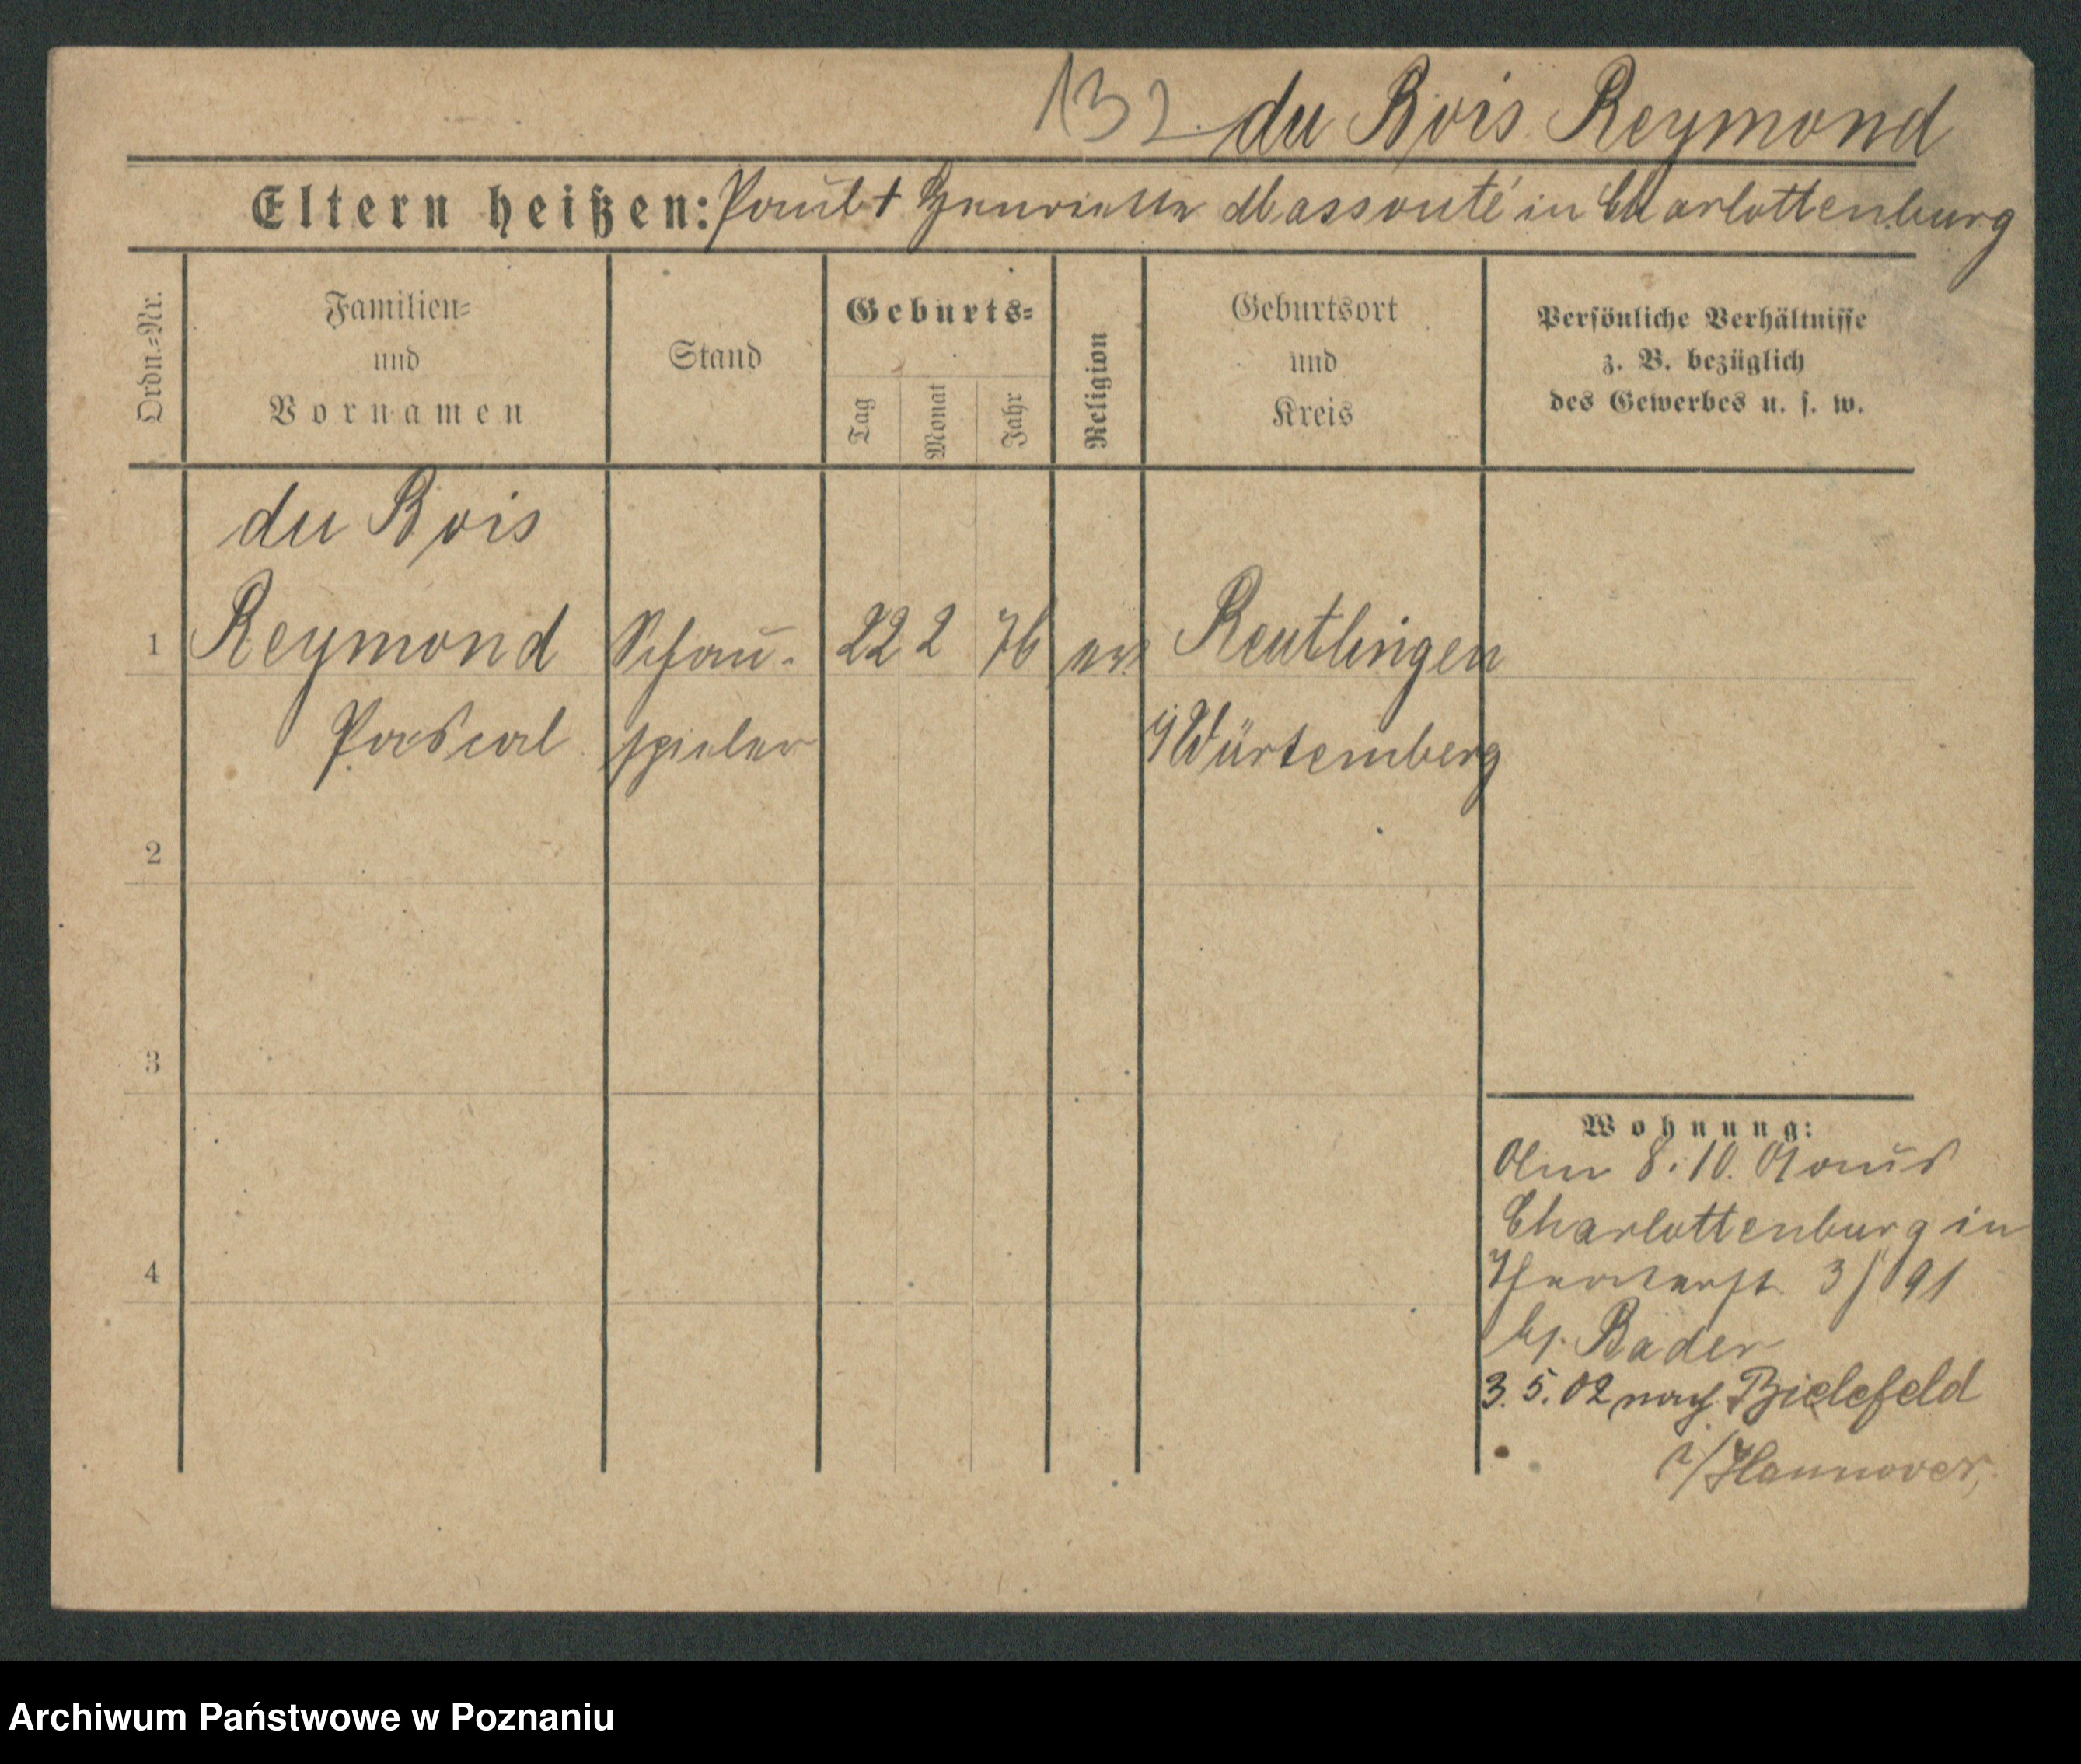 132 du Bois Reymond
Eltern heißen: Paul + Henriette Massouté in Charlottenburg
Ordn.-Nr.
Familien-
und
Vornamen
Stand
Geburts-
Tag
Monat
Jahr
Religion
Geburtsort
und
Kreis
Persönliche Verhältnisse
z. B. bezüglich
des Gewerbes u. s. w.
du Bois
1 Reymond Schau- 22 2 76 ev. Reutlingen
Pascal spieler Würtemberg
2
3
4
Wohnung:
Am 8.10.01 aus
Charlottenburg in
Theaterst. 3/ 91
b/. Bader
3.5.02 nach Bielefeld
i/Hannover,
Archiwum Państwowe w Poznaniu